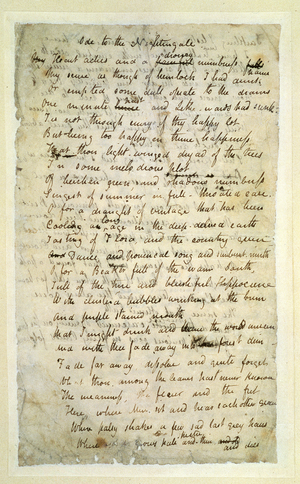 Ode to the Nightingale
Heart aches and a drowsy painful numbness
My sense as though of hemlock I had drunk
Or emptied some dull opiate to the drains
One minute hence past and Lethe-wards had sunk
Tis not through envy of thy happy lot
But being too happy in thine happiness
That thou light-winged dryad of the trees
In some melodious plot
Of beechen green and shadows numberless
Singest of summer in full-throated ease
O for a draught of vintage that has been
Cooling an age in the deep-delved earth
Tasting of Flora and the country green
And Dance and provencal song and sunburnt mirth
O for a Beaker full of the warm South
Full of the true and blushful Hippocrene
With cluster'd bubbles winking at the brim
And purple stained mouth
That I might drink and leave the world unseen
And with thee fade away into forest dim
Fade far away dissolve and quite forget
What thou among the leaves hast never known
The weariness the fever and the fret
Here, where Men sit and hear each other groan
Where palsy shakes a few sad last grey hairs
Where grows pale and thin and dies